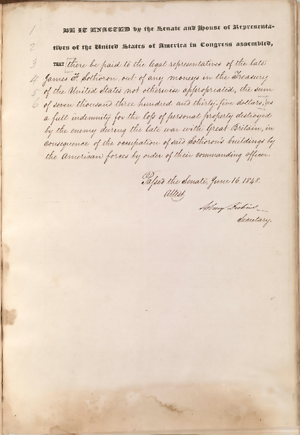 1 BE IT ENACTED by the Senate and House of Representa-
2 tives of the United States of America in Congress assembled,
3 THAT there be paid to the legal representatives of the late
4 James F. Sothoron, out of any moneys in the Treasury
5 of the United States not otherwise appropriated, the sum
6 of seven thousand three hundred and thirty-five dollars, as
a full indemnity for the loss of personal property destroyed
by the enemy during the late war with Great Britain, in
consequence of the occupation of said Sothoron's buildings by
the American forces by order of their commanding officer.
Passed the Senate, June 16, 1840.
Attest,
Asbury Dickins
Secretary.